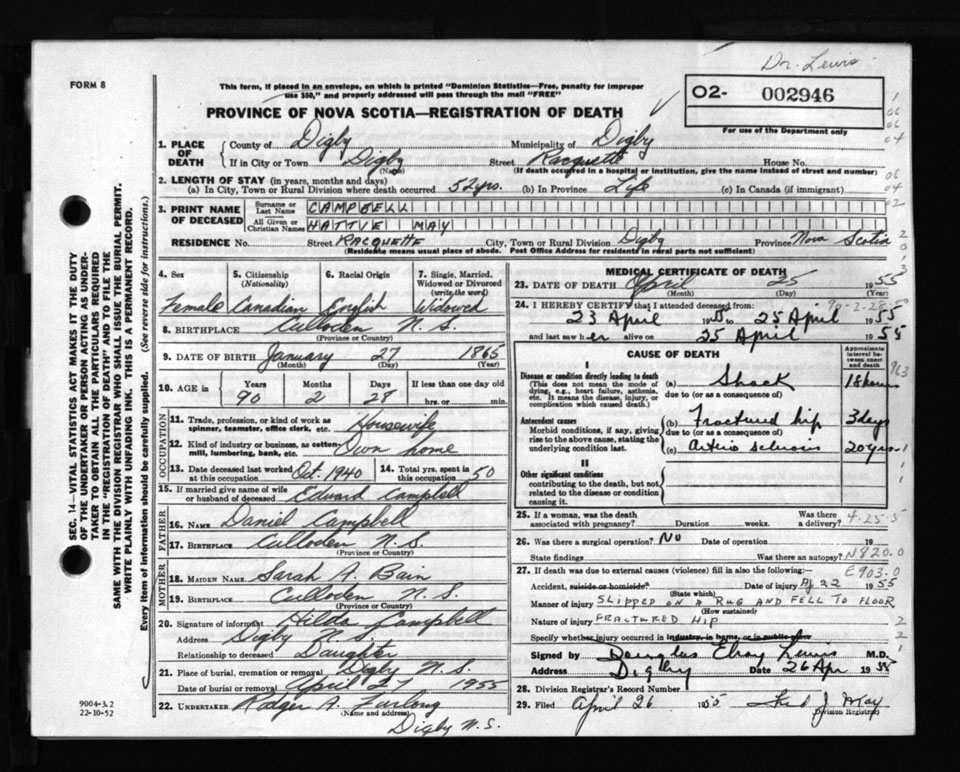 Dr. Lewis
FORM 8
This form, if placed in an envelope, on which is printed "Dominion Statistics—Free, penalty for improper
use $50," and properly addressed will pass through the mail "FREE"
02- 002946
For use of the Department only
PROVINCE OF NOVA SCOTIA—REGISTRATION OF DEATH
1. PLACE OF DEATH
County of Digby Municipality of Digby
If in City or Town Digby Street Racquette House No.
(Name) (If death occurred in a hospital or institution, give the name instead of street and number)
2. LENGTH OF STAY (in years, months and days)
(a) In City, Town or Rural Division where death occurred 52 yrs. (b) In Province Life (c) In Canada (if immigrant)
3. PRINT NAME OF DECEASED
Surname or Last Name CAMPBELL
All Given or Christian Names HATTIE MAY
RESIDENCE No. Street RACQUETTE City, Town or Rural Division Digby Province Nova Scotia
(Residence means usual place of abode. Post Office Address for residents in rural parts not sufficient)
4. Sex 5. Citizenship 6. Racial Origin 7. Single, Married, Widowed or Divorced
(Nationality) (write the word)
Female Canadian English Widowed
8. BIRTHPLACE Culloden N.S.
(Province or Country)
9. DATE OF BIRTH January 27 1865
(Month) (Day) (Year)
10. AGE in Years Months Days If less than one day old
90 2 28 hrs. or min.
OCCUPATION
11. Trade, profession or kind of work as spinner, teamster, office clerk, etc. Housewife
12. Kind of industry or business, as cotton-mill, lumbering, bank, etc. Own home
13. Date deceased last worked at this occupation Oct. 1940 14. Total yrs. spent in this occupation 50
15. If married give name of wife or husband of deceased Edward Campbell
FATHER
16. NAME Daniel Campbell
17. BIRTHPLACE Culloden N.S.
(Province or Country)
MOTHER
18. MAIDEN NAME Sarah A. Bain
19. BIRTHPLACE Culloden N.S.
(Province or Country)
20. Signature of informant Hilda Campbell
Address Digby N.S.
Relationship to deceased Daughter
21. Place of burial, cremation or removal Digby N.S.
Date of burial or removal April 27 1955
22. UNDERTAKER Rodger A. Furlong
(Name and address)
Digby N.S.
MEDICAL CERTIFICATE OF DEATH
23. DATE OF DEATH April 25 1955
(Month) (Day) (Year)
24. I HEREBY CERTIFY that I attended deceased from: 90-2-28
23 April 1955 to 25 April 1955
and last saw her alive on 25 April 1955
CAUSE OF DEATH
Approximate interval between onset and death
I
Disease or condition directly leading to death
(This does not mean the mode of dying, e.g., heart failure, asthenia, etc. It means the disease, injury, or complication which caused death.)
(a) Shock 18 hours
due to (or as a consequence of)
Antecedent causes
Morbid conditions, if any, giving rise to the above cause, stating the underlying condition last.
(b) Fractured hip 3 days
due to (or as a consequence of)
(c) Arterio sclerosis 20 years
II
Other significant conditions
contributing to the death, but not related to the disease or condition causing it.
25. If a woman, was the death associated with pregnancy? Duration weeks. Was there a delivery? 4-25-5
26. Was there a surgical operation? No Date of operation 19
State findings Was there an autopsy? N820.0
27. If death was due to external causes (violence) fill in also the following: E903.0
Accident, suicide or homicide? Date of injury Ap 22 1955
(State which)
Manner of injury SLIPPED ON A RUG AND FELL TO FLOOR
(How sustained)
Nature of injury FRACTURED HIP
Specify whether injury occurred in industry, in home, or in public place
Signed by Douglas Lewis M.D.
Address Digby Date 26 Apr 1955
28. Division Registrar's Record Number
29. Filed April 26 1955 J May
Division Registrar
SEC. 14—VITAL STATISTICS ACT MAKES IT THE DUTY
OF THE UNDERTAKER OR PERSON ACTING AS UNDER-
TAKER TO OBTAIN ALL THE PARTICULARS REQUIRED
IN THE "REGISTRATION OF DEATH" AND TO FILE THE
SAME WITH THE DIVISION REGISTRAR WHO SHALL ISSUE THE BURIAL PERMIT.
WRITE PLAINLY WITH UNFADING INK. THIS IS A PERMANENT RECORD.
Every item of information should be carefully supplied. (See reverse side for instructions.)
9004-3.2
22-10-52